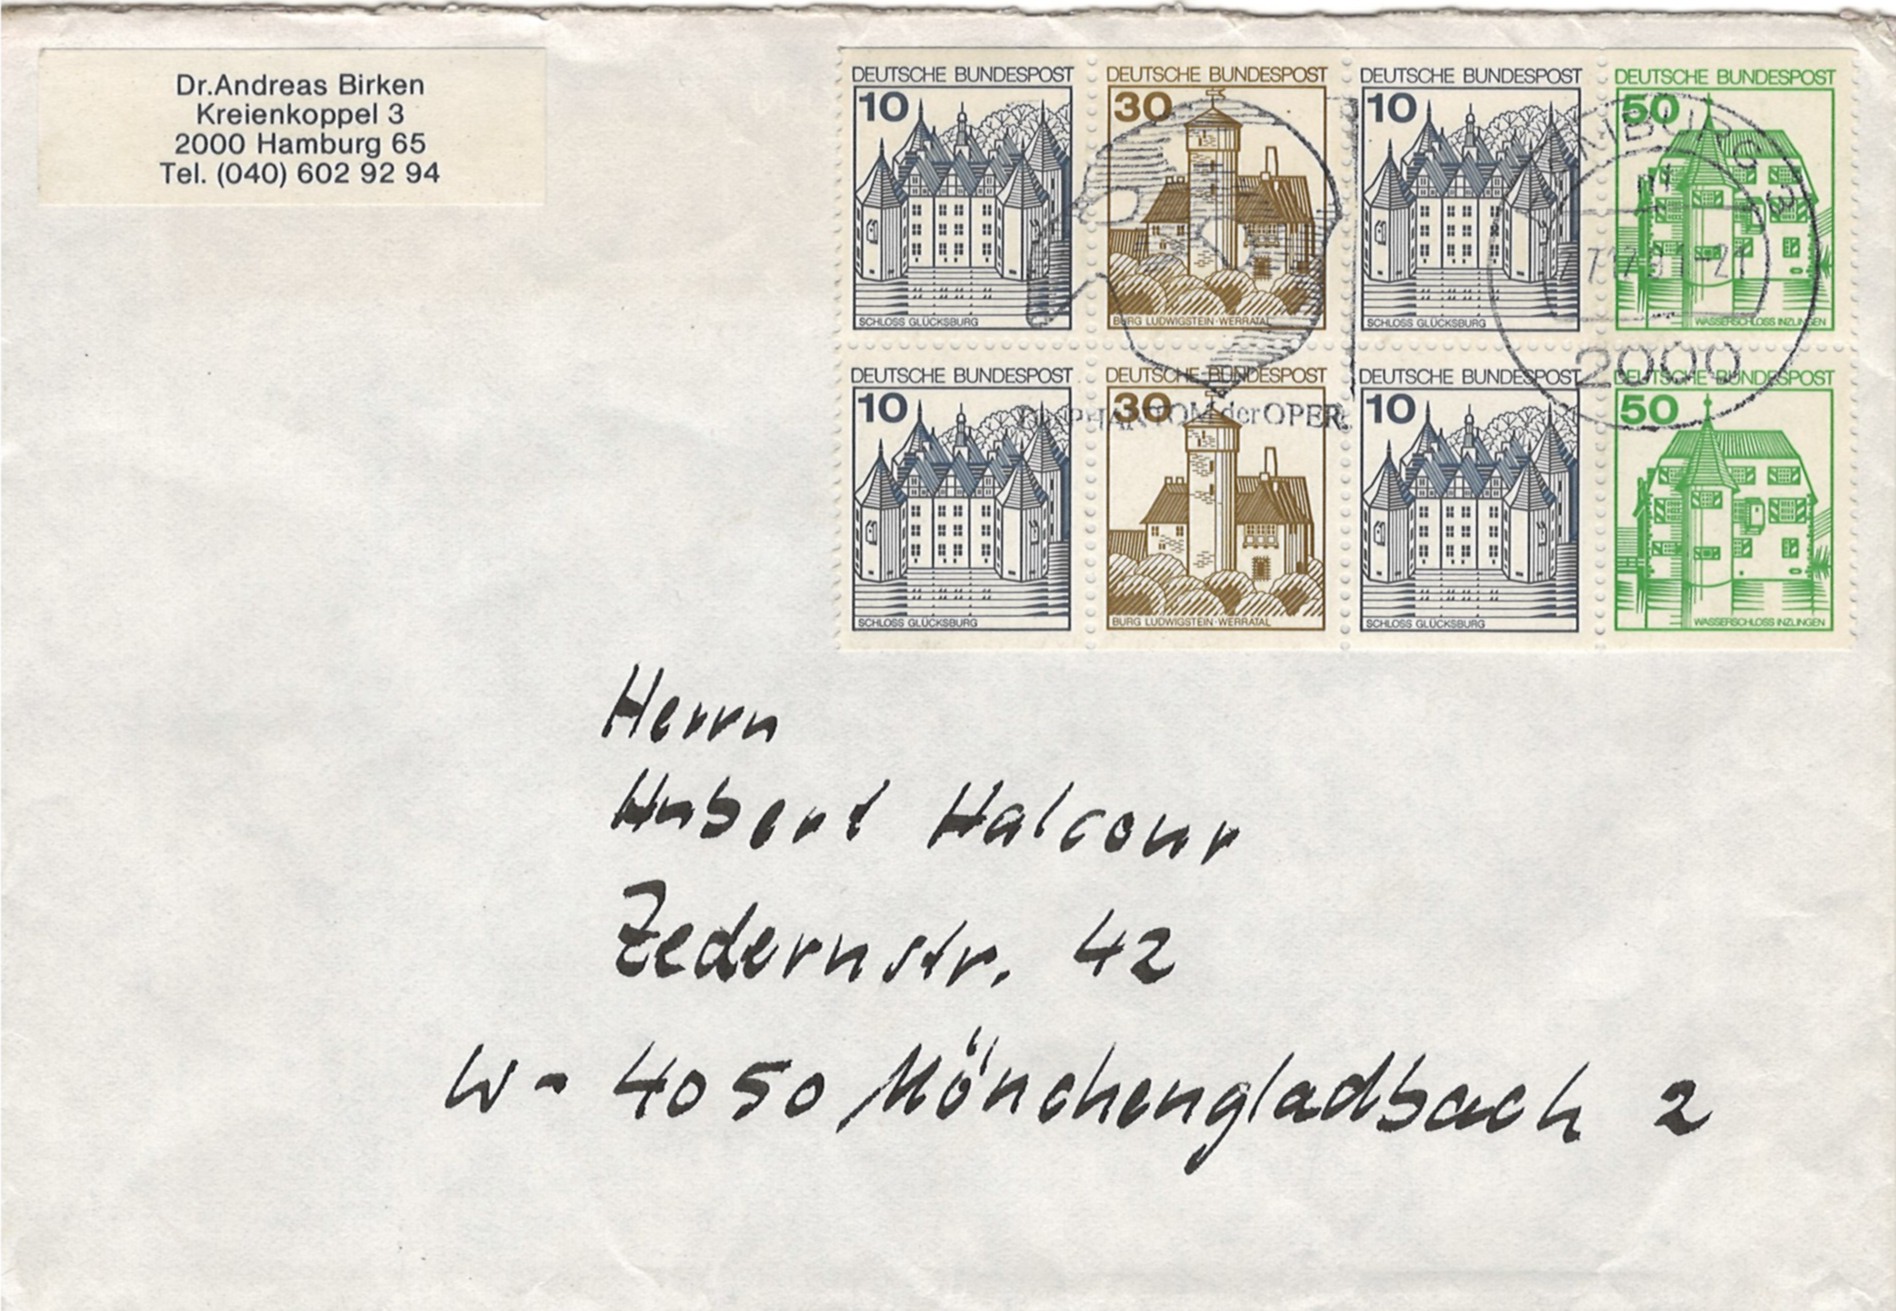 Dr.Andreas Birken
Kreienkoppel 3
2000 Hamburg 65
Tel. (040) 602 92 94
DEUTSCHE BUNDESPOST DEUTSCHE BUNDESPOST DEUTSCHE BUNDESPOST DEUTSCHE BUNDESPOST
10 30 10 50
SCHLOSS GLÜCKSBURG BURG LUDWIGSTEIN·WERRATAL SCHLOSS GLÜCKSBURG WASSERSCHLOSS INZLINGEN
2000
DEUTSCHE BUNDESPOST DEUTSCHE BUNDESPOST DEUTSCHE BUNDESPOST DEUTSCHE BUNDESPOST
10 30 10 50
PHANTOM der OPER
SCHLOSS GLÜCKSBURG BURG LUDWIGSTEIN·WERRATAL SCHLOSS GLÜCKSBURG WASSERSCHLOSS INZLINGEN
Herrn
Hubert Halcour
Zedernstr. 42
W - 4050 Mönchengladbach 2